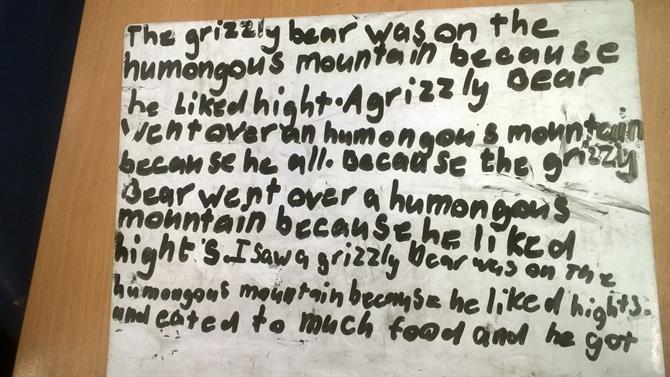 The grizzly bear was on the
humongous mountain because
he liked hight. A grizzly Bear
Went over an humongous mountain
because he all. Because the grizzy
Bear went over a humongous
mountain because he liked
hight's. I saw a grizzly Bear was on the
humongous mountain because he liked hights.
and eated to much food and he got